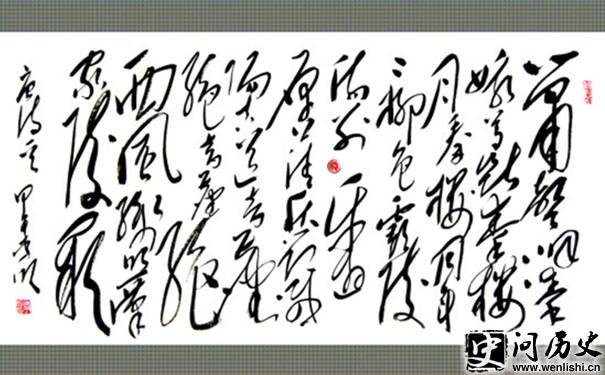 簫聲咽秦
娥梦断秦楼
月秦楼月年
々柳色霸陵
伤别乐遊
原上清秋节咸
陽古道音尘
绝音尘绝
西风残照汉
家陵阙
问历史
www.wenlishi.cn